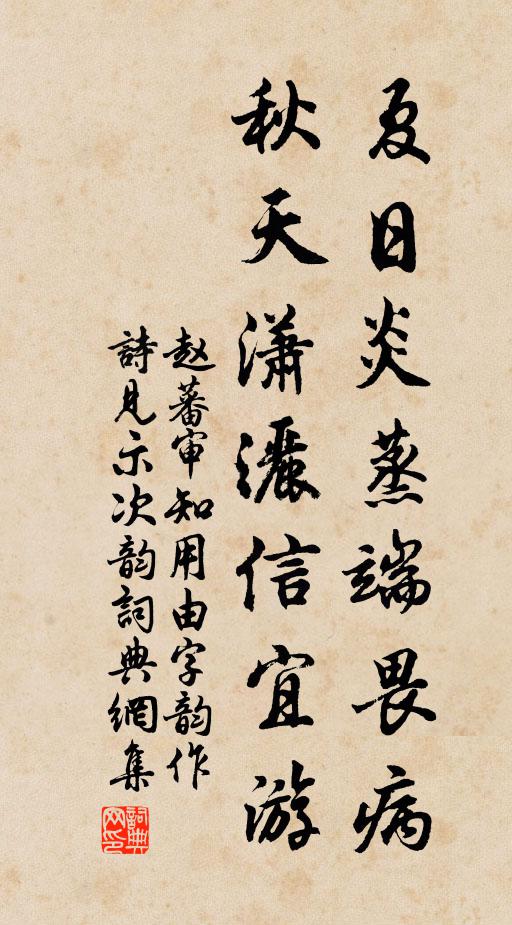 夏日炎蒸端畏病
秋天瀟灑信宜游
赵蕃审知用由字韵作
詩見示次韵詞典網集
詞典网印